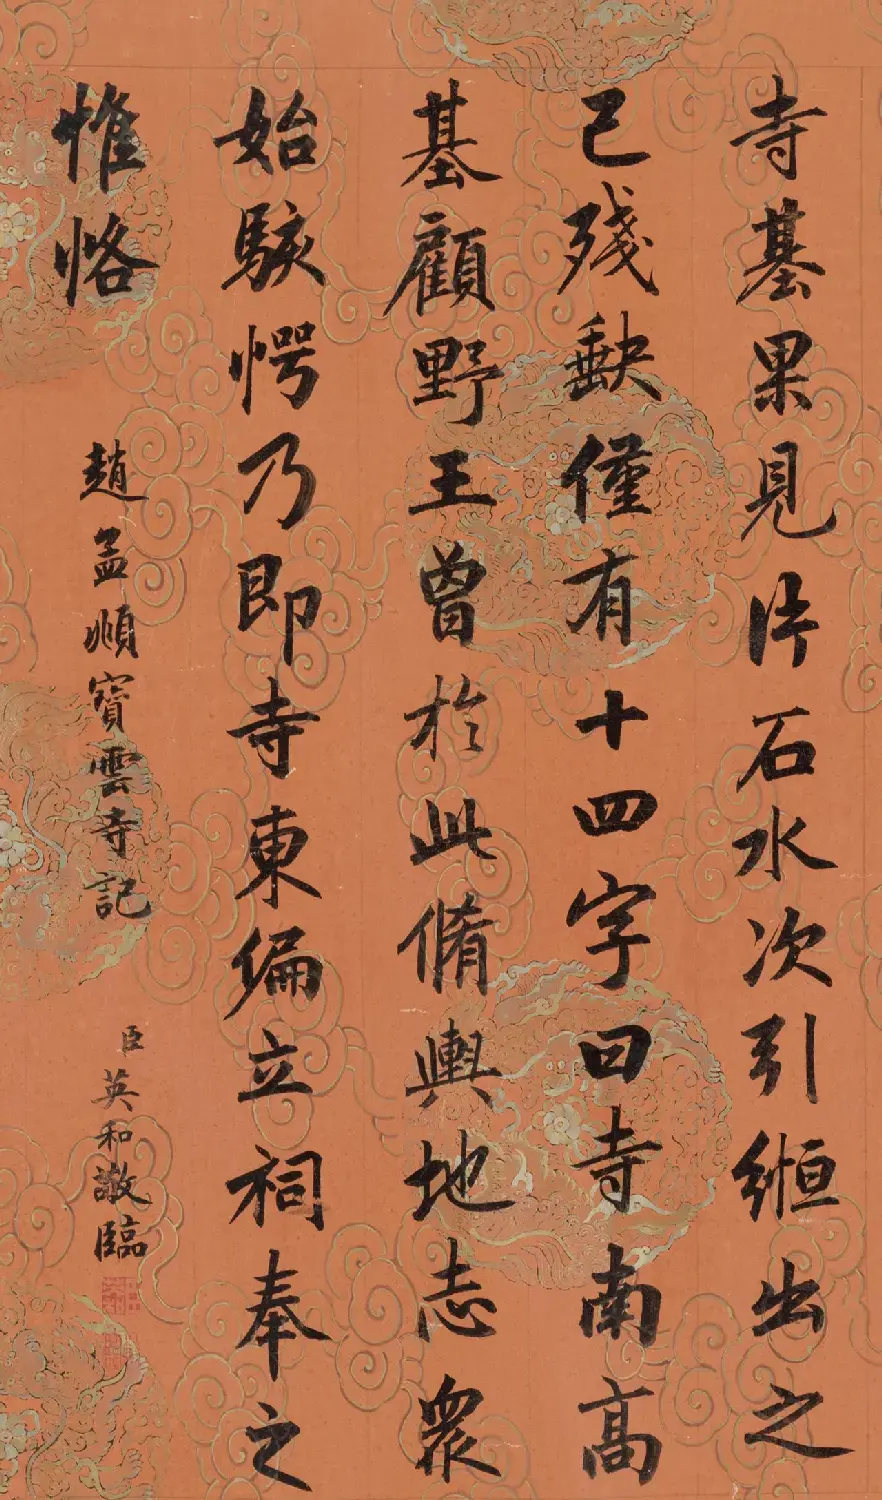 寺基果見片石水次引緪出之
已殘缺僅有十四字曰寺南高
基顧野王曾於此脩輿地志眾
始駭愕乃即寺東偏立祠奉之
惟恪
趙孟頫寶雲寺記
臣英和敬臨